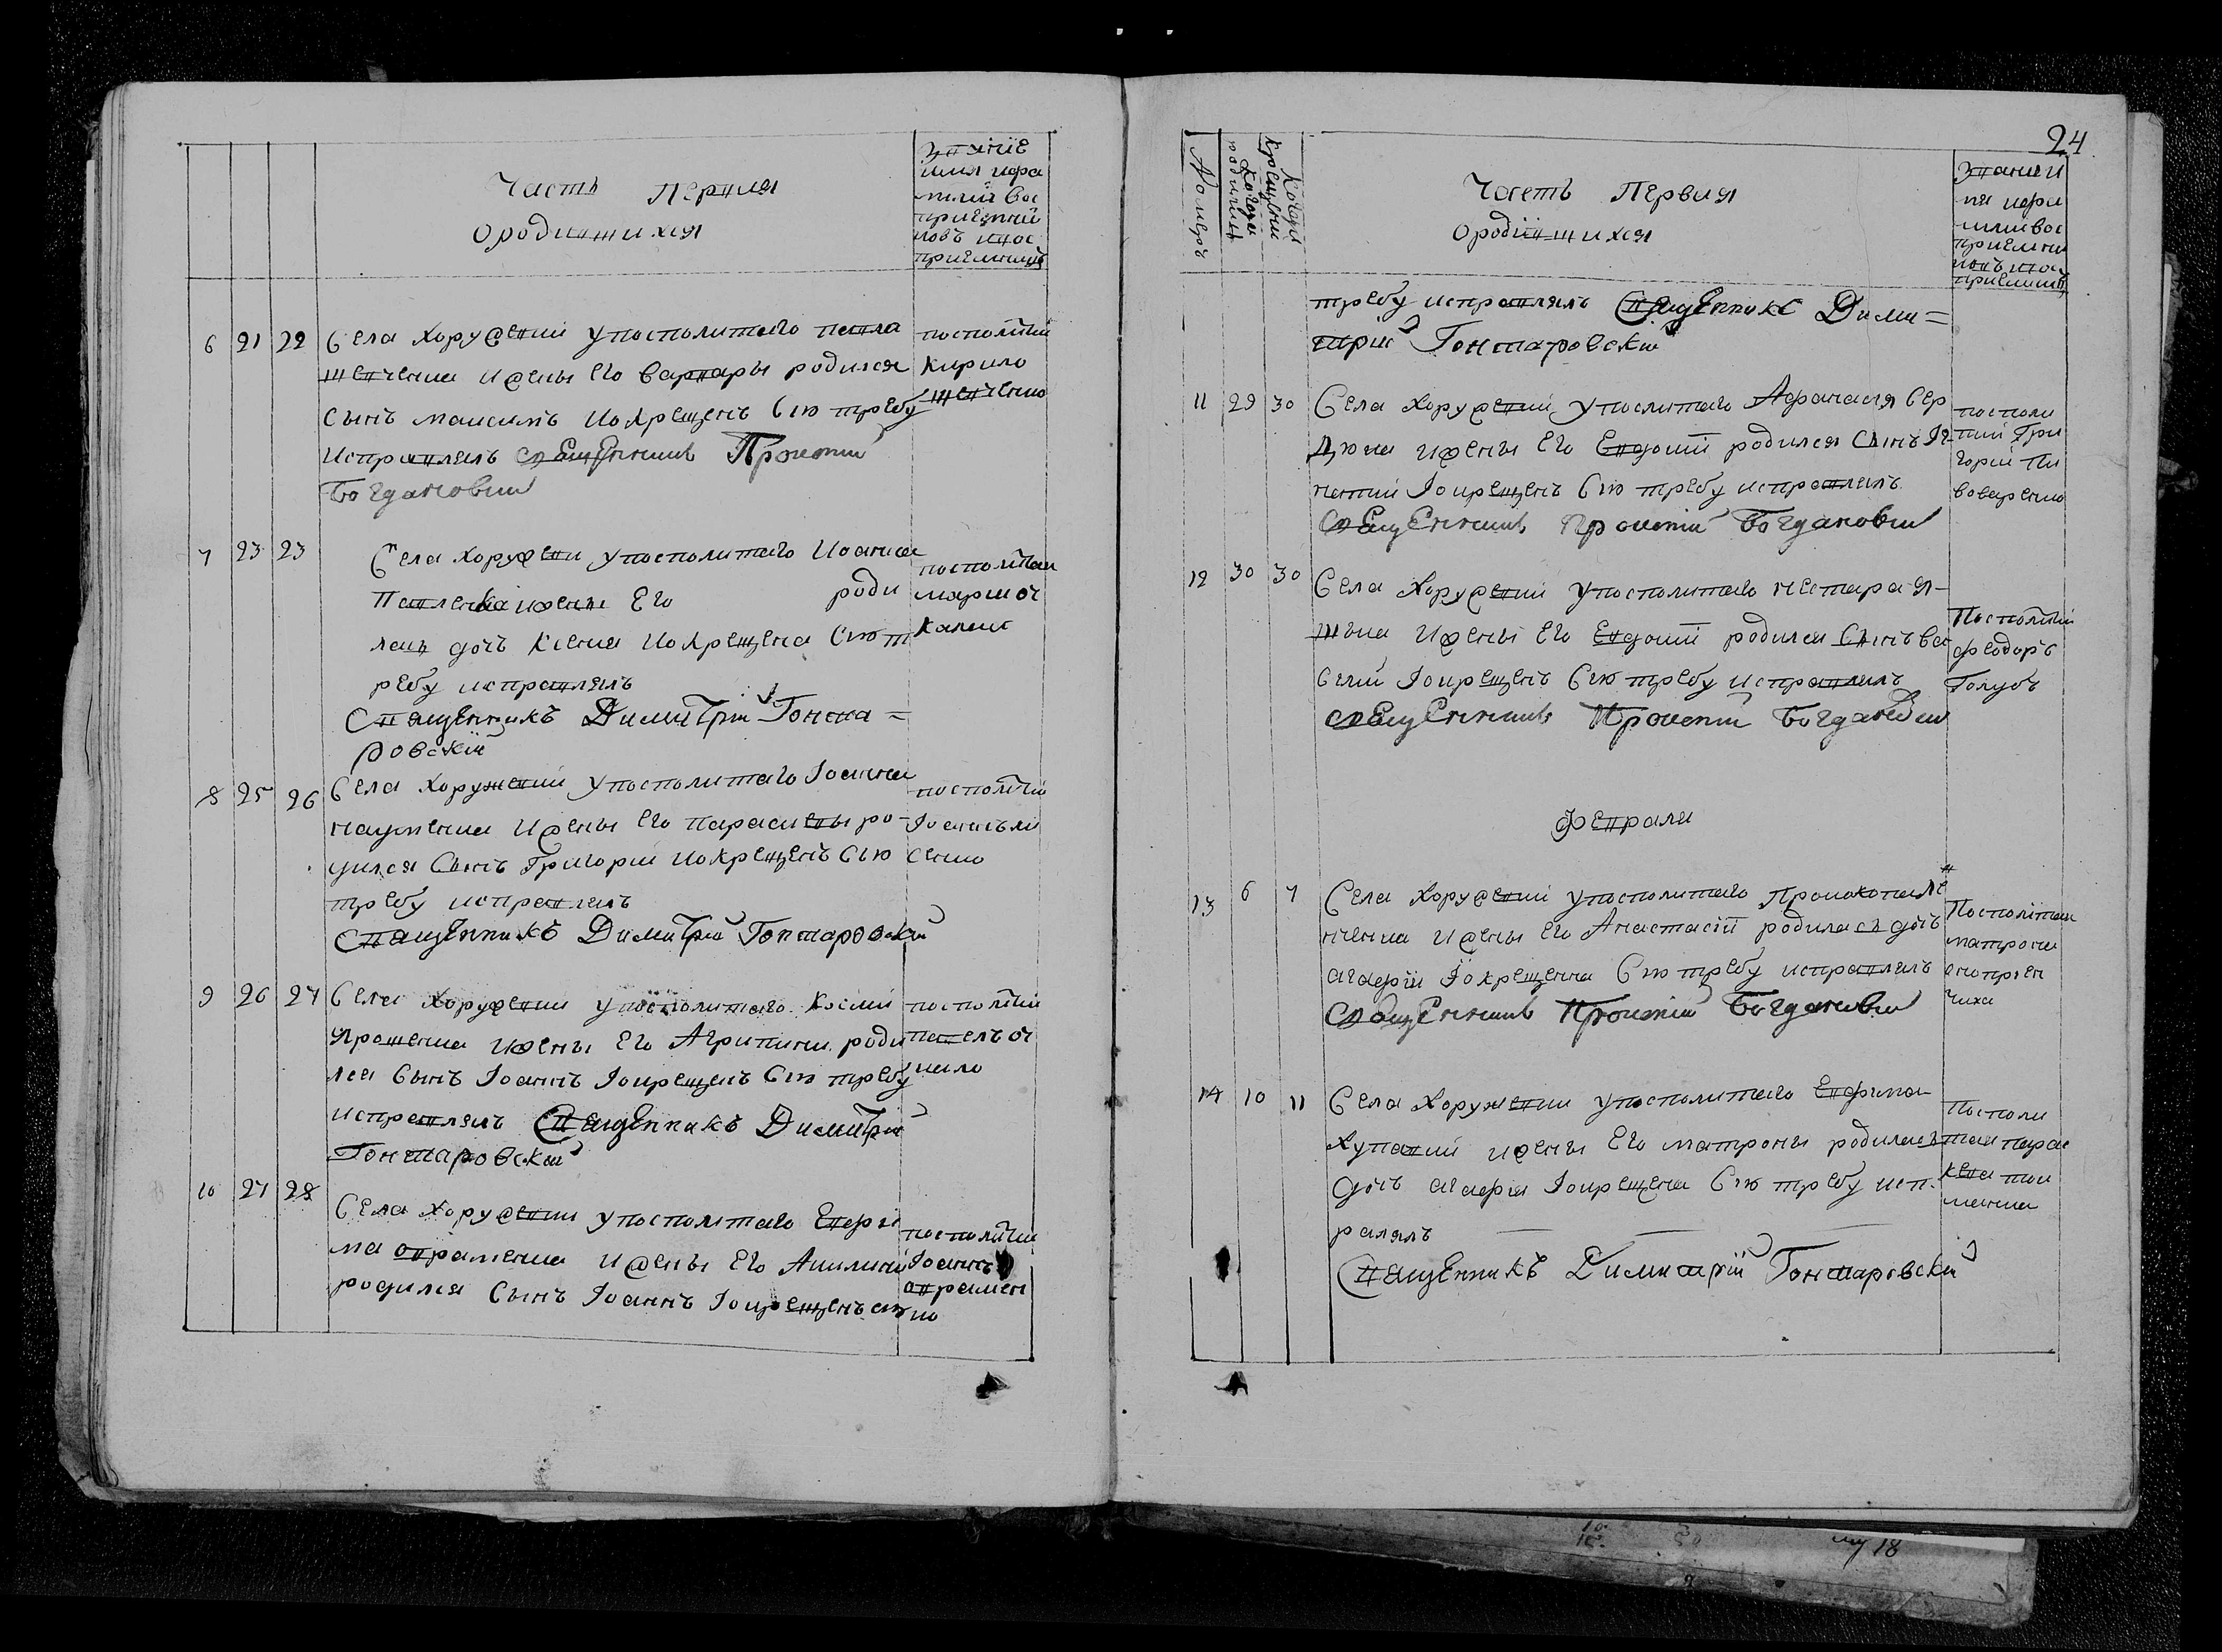 Часть Первая
О родившихся
званїе
имя и фа
милїи вос
приемни
ковъ и вос
приемницъ
6 21 22 Села Хоружевки у посполитаго павла
шевченка и жены его варвары родился
сынъ максимъ и окрещенъ сию требу
исправлялъ священникъ Прокопий
Богдановий
посполитий
Кирило
шевченко
7 23 23 Села Хоружевки у посполитаго Иоанна
Павленка и жены его роди
лась дочь Ксения и окрещена сию т
ребу исправлялъ
Священникъ Димитрій Гонча=
ровскій
8 25 26 Села Хоружевки у посполитаго Іоанна
науменка и жены его параскевы ро-
дился сынъ Григорий и окрещенъ сию
требу исправлялъ
Священникъ Димитрій Гончаровскій
посполитий
9 26 27 Села Хоружевки у посполитаго Космы
Ярошенка и жены его Агрипины роди
лся сынъ Іоаннъ Іокрещенъ сию требу
исправлялъ Священникъ Димитрій
Гончаровскій
посполитий
павелъ
10 27 28 Села Хоружевки у посполитаго Евфи
ма авраменка и жены его Акилины
родился сынъ Іоаннъ Іокрещенъ сию
посполитий
Іоаннъ
аврамен
ко
24
Номеръ
Когда родились
Когда крещены
Часть Первая
О родівшихся
приемни
требу исправлялъ Священникъ Дими=
трій Гончаровскій
11 29 30 Села Хоружевки у посполитаго Афанасия Сер
дюка и жены его Евдокиї родился сынъ Іг
натий Іокрещенъ сию требу исправлялъ
Священникъ Прокопій Богдановий
посполи
тий Гри
горий Пи
воваренко
12 30 30 Села Хоружевки у посполитаго нестара я-
и жены его Евдокиї родился сынъ ва
силий Іокрещенъ сию требу исправлялъ
священникъ Прокопий Богдановий
Посполитий
федоръ
Голубъ
февраля
13 6 7 Села Хоружевки у посполитаго
и жены его Анастасїи родилась дочь
агафїя Іокрещенна сию требу исправлялъ
Священникъ Прокопій Богдановий
Посполїтая
матрона
14 10 11 Села Хоружевки у посполитаго Евфима
Хупавки и жены его матроны родилась
дочь агафия Іокрещена сию требу исп-
ралялъ
Священникъ Димитрїй Гончаровский
посполи
тая парас
кева